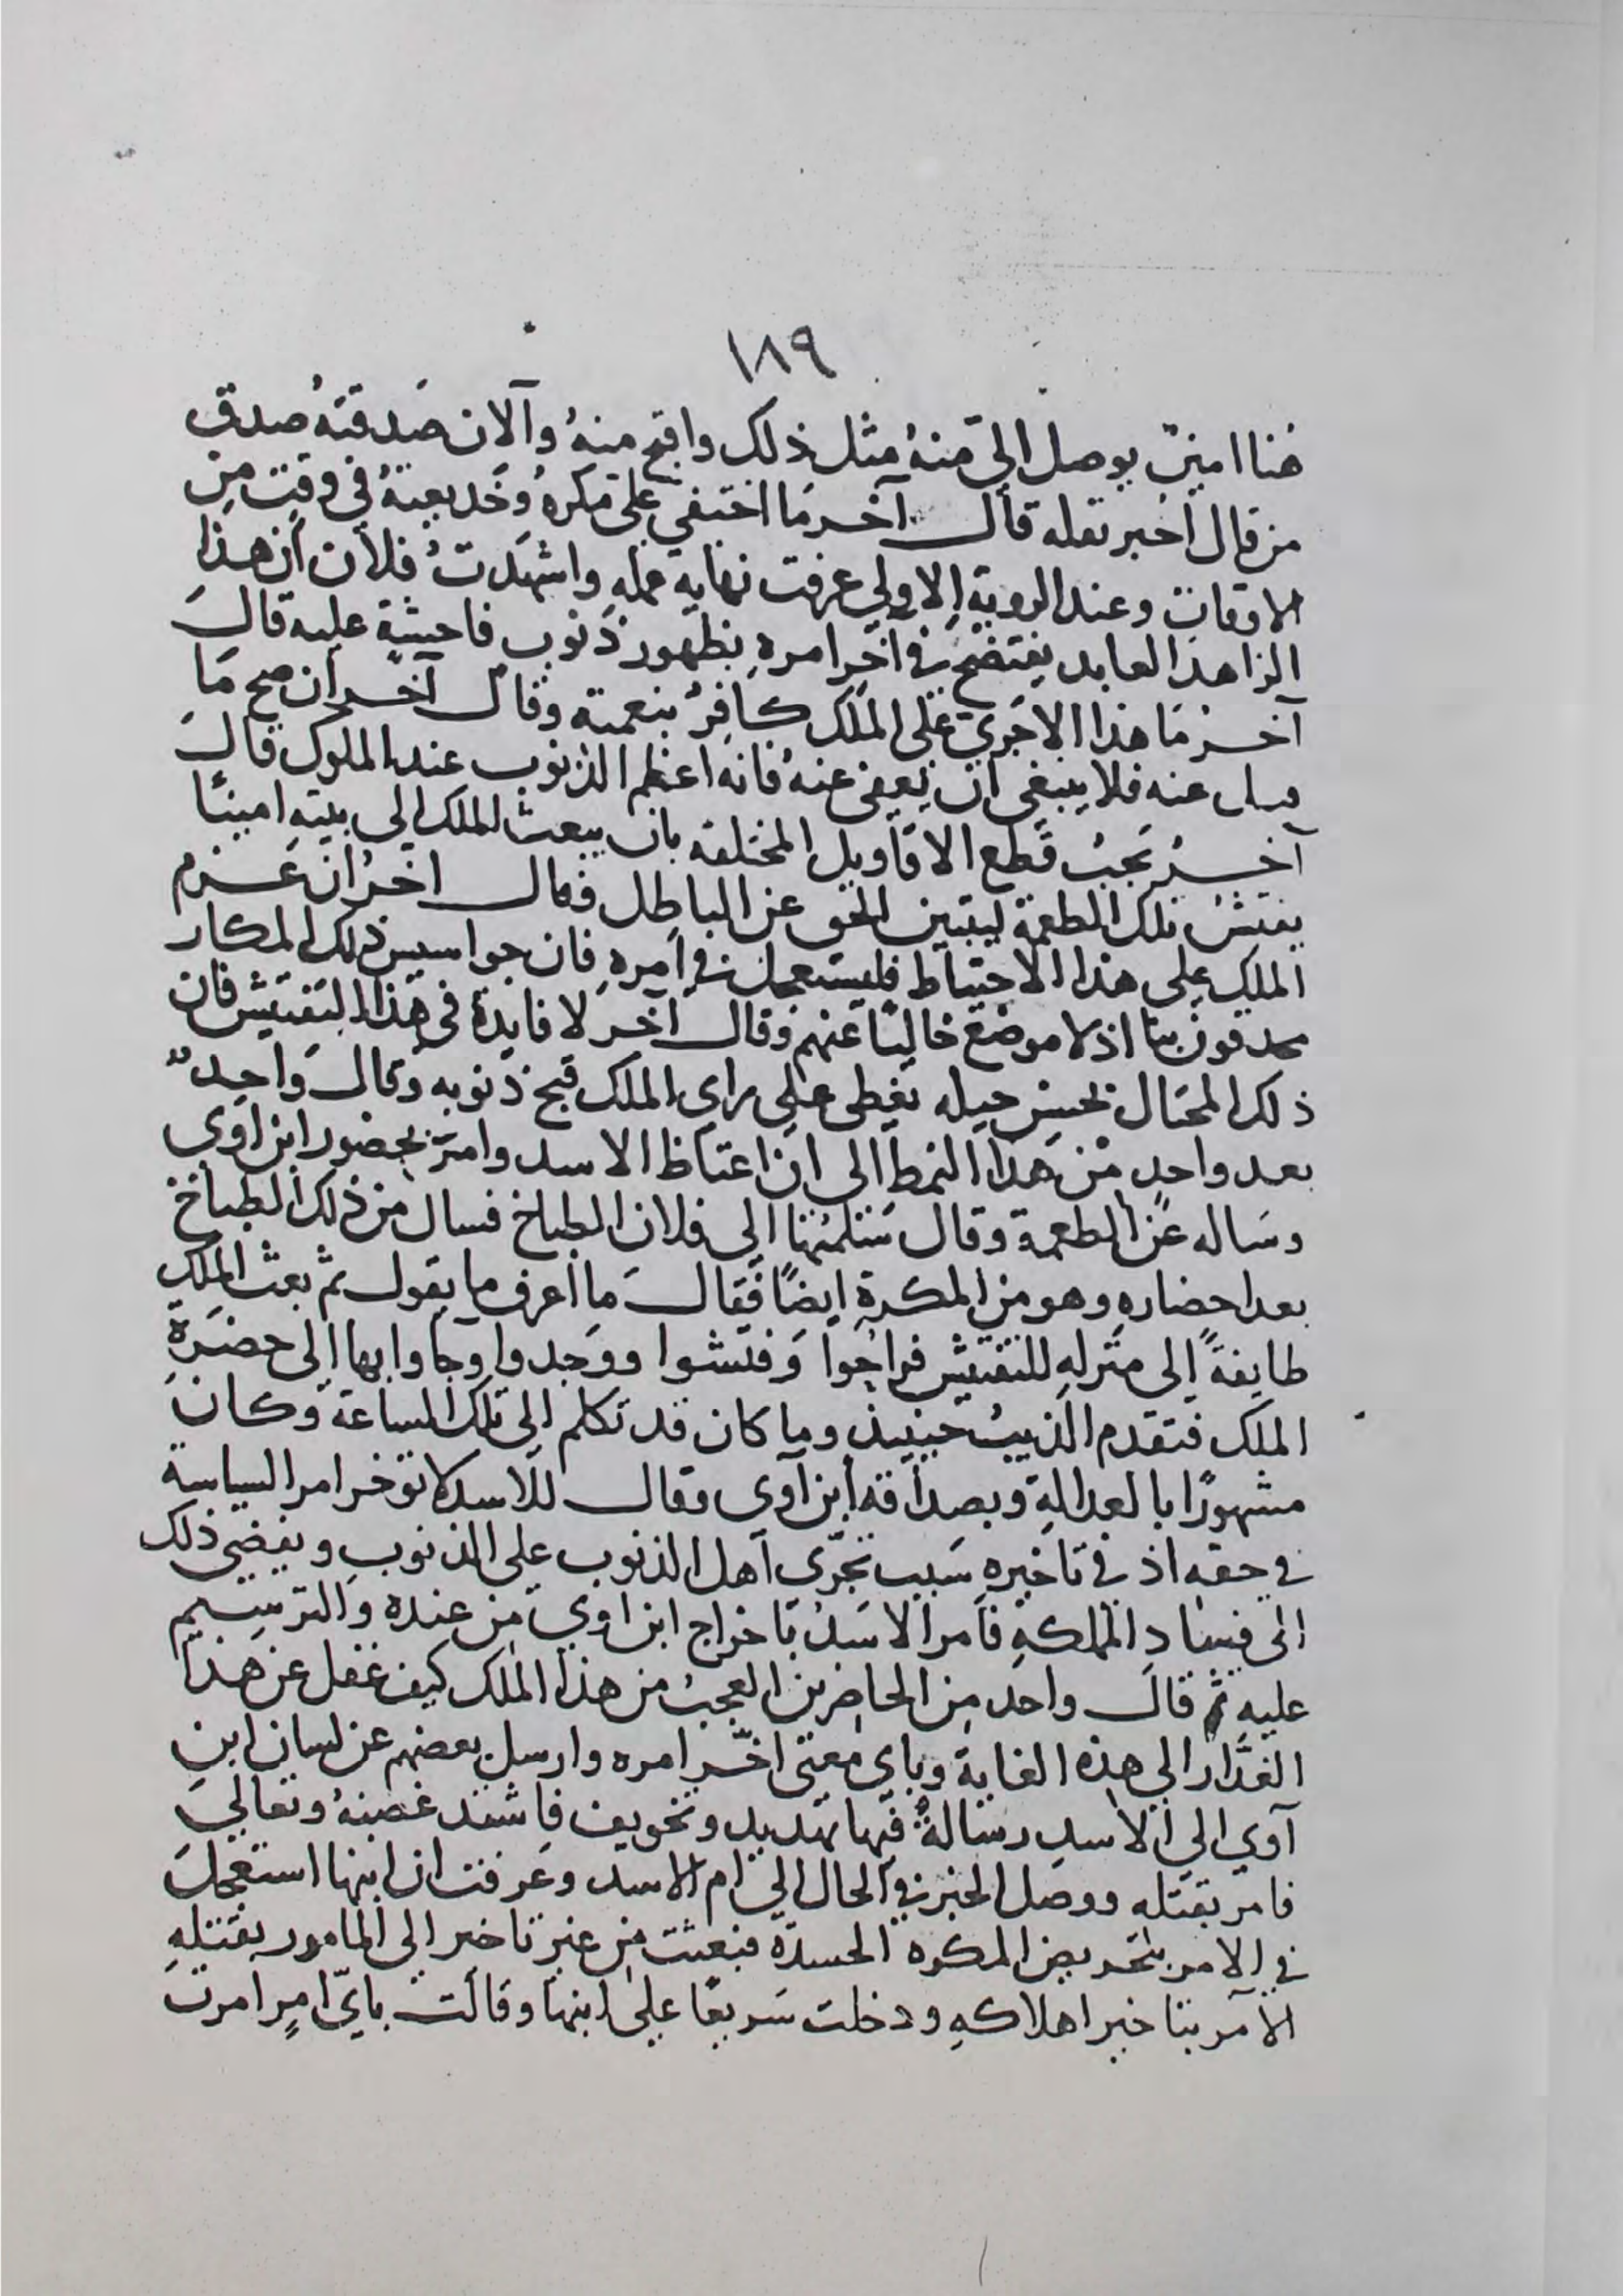 ١٨٩
هنا امينٌ يوصل اليّ منهُ مثل ذلك واقبح منهُ وآلان صَدقتهُ صدق
من قال اخبر تقله قال آخر مَا اختفي علي مَكرهُ وَخديعتهُ في وقتٍ من
الاوقات وعند الروية الاولي عرفت نهاية عمله واشهدتُ فلان ان هذا
الزاهد العابد يفتضح في آخر امرهِ بظهور ذنوب فاحيثة عليه قالَ
آخرُ مَا هذا الاجَري علي الملك كافرٌ بنعمته وقال آخر ان صح مَا
قيل عنه فلا ينبغي ان يعفى عنهُ فانه اعظم الذنوب عند الملوك قالَ
آخرُ يجبُ قَطع الاقاويل المختلفه بان يبعث الملك الى بيته امينًا
يفتشُ تلك الطعمة ليتبين الحق عن الباطل فقال اخرُ ان عَزم
الملك علي هذا الاحتياط فليستعجل في امرهِ فان جواسيس ذلك المكار
محدقون بنا اذ لا موضع خاليًا عنهم وقال آخر لا فايدة في هذا التفتيش فان
ذلك المحتال بحسن حيله يغطى علي راي الملك قبح ذنوبه وقال وَاحدٌ
بعد واحدٍ من هذا النمط الى ان اغتاظ الاسد وامرَ بحضور ابن اوى
وسَاله عن الطعمة وقال سَلمتُها الي فلان الطباخ فسال من ذلك الطباخ
بعد احضارهِ وهو من المكرة ايضًا فقالَ ما اعرف ما يقول ثم بعث الملك
طايفةً الي منزلهِ للتفتيش فراحُوا وَفتشوا ووَجدوا وجاوا بها الى حضرَةِ
الملك فتقدم الذيبُ حينيذٍ وما كان قد تكلم الي تلك الساعة وكانَ
مشهورًا بالعدالةِ وبصداقه ابن آوى وقال للاسد لا توخر امر السياسة
في حقه اذ في تاخيرهِ سَبب تجرّى اهل الذنوب علي الذنوبِ ويفضي ذلك
الى فسادِ المملكهِ فامر الاسَدُ باخراج ابن اوي من عنده والترسيم
عليهِ ثم قالَ واحد من الحاضرين العجبُ من هذا الملك كيف غفل عن هَذا
الغدّار الي هذه الغاية وباي معنى اخّر امره وارسل بعضهم عن لسان ابن
آوي الي الاسدِ رسالةً فيها تهديد وتخويف فاشتد غضبهُ وتعالي
فامر بقتله ووصل الخبر في الحال الي ام الاسد وعَرفت ان ابنها استعجلَ
في الامر بتحريض المكره الحسدة فبعثت من غير تاخير الى المامور بقتلهِ
الآمر بتاخير اهلاكهِ ودخلت سَريعًا على ابنها وقالت بايّ امرٍ امرت